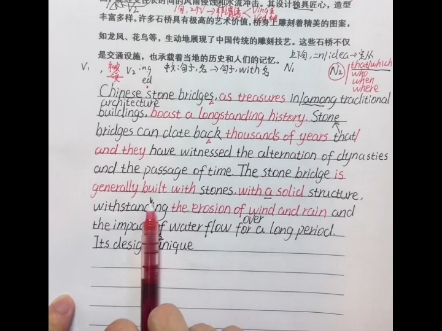 丰富多样。许多石桥具有极高的艺术价值，桥身上雕刻着精美的图案，
如龙凤、花鸟等，生动地展现了中国传统的雕刻技艺。这些石桥不仅
是交通设施，也承载着当地的历史和人们的记忆。
V₁ V₂ ing
ed
N₁
N₂
that/which
who
when
where
Chinese stone bridges, as treasures in/among traditional
architecture
buildings, boast a longstanding history. Stone
bridges can date back thousands of years that/
and they have witnessed the alternation of dynasties
and the passage of time. The stone bridge is
generally built with stones, with a solid structure,
withstanding the erosion of wind and rain and
over
the impact of water flow for a long period.
Its design unique